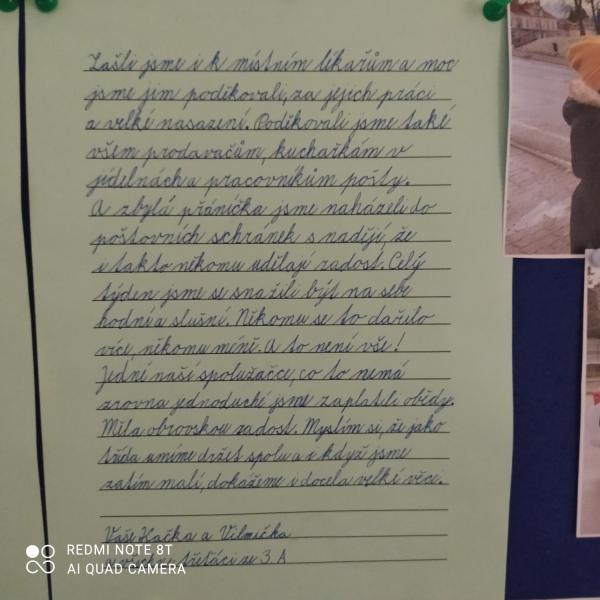 Zašli jsme i k místním lékařům a moc
jsme jim poděkovali, za jejich práci
a velké nasazení. Poděkovali jsme také
všem prodavačům, kuchařkám v
jídelnách a pracovníkům pošty.
A zbylá přáníčka jsme naházeli do
poštovních schránek s nadějí, že
i takto někomu udělají radost. Celý
týden jsme se snažili být na sebe
hodní a slušní. Někomu se to dařilo
více, někomu méně. A to není vše!
Jedné naší spolužačce, co to nemá
zrovna jednoduché jsme zaplatili obědy.
Měla obrovskou radost. Myslím si, že jako
třída umíme držet spolu a i když jsme
zatím malí, dokážeme i docela velké věci.
Vaše Kačka a Vilmička
a všichni třeťáci ze 3. A
REDMI NOTE 8T
AI QUAD CAMERA